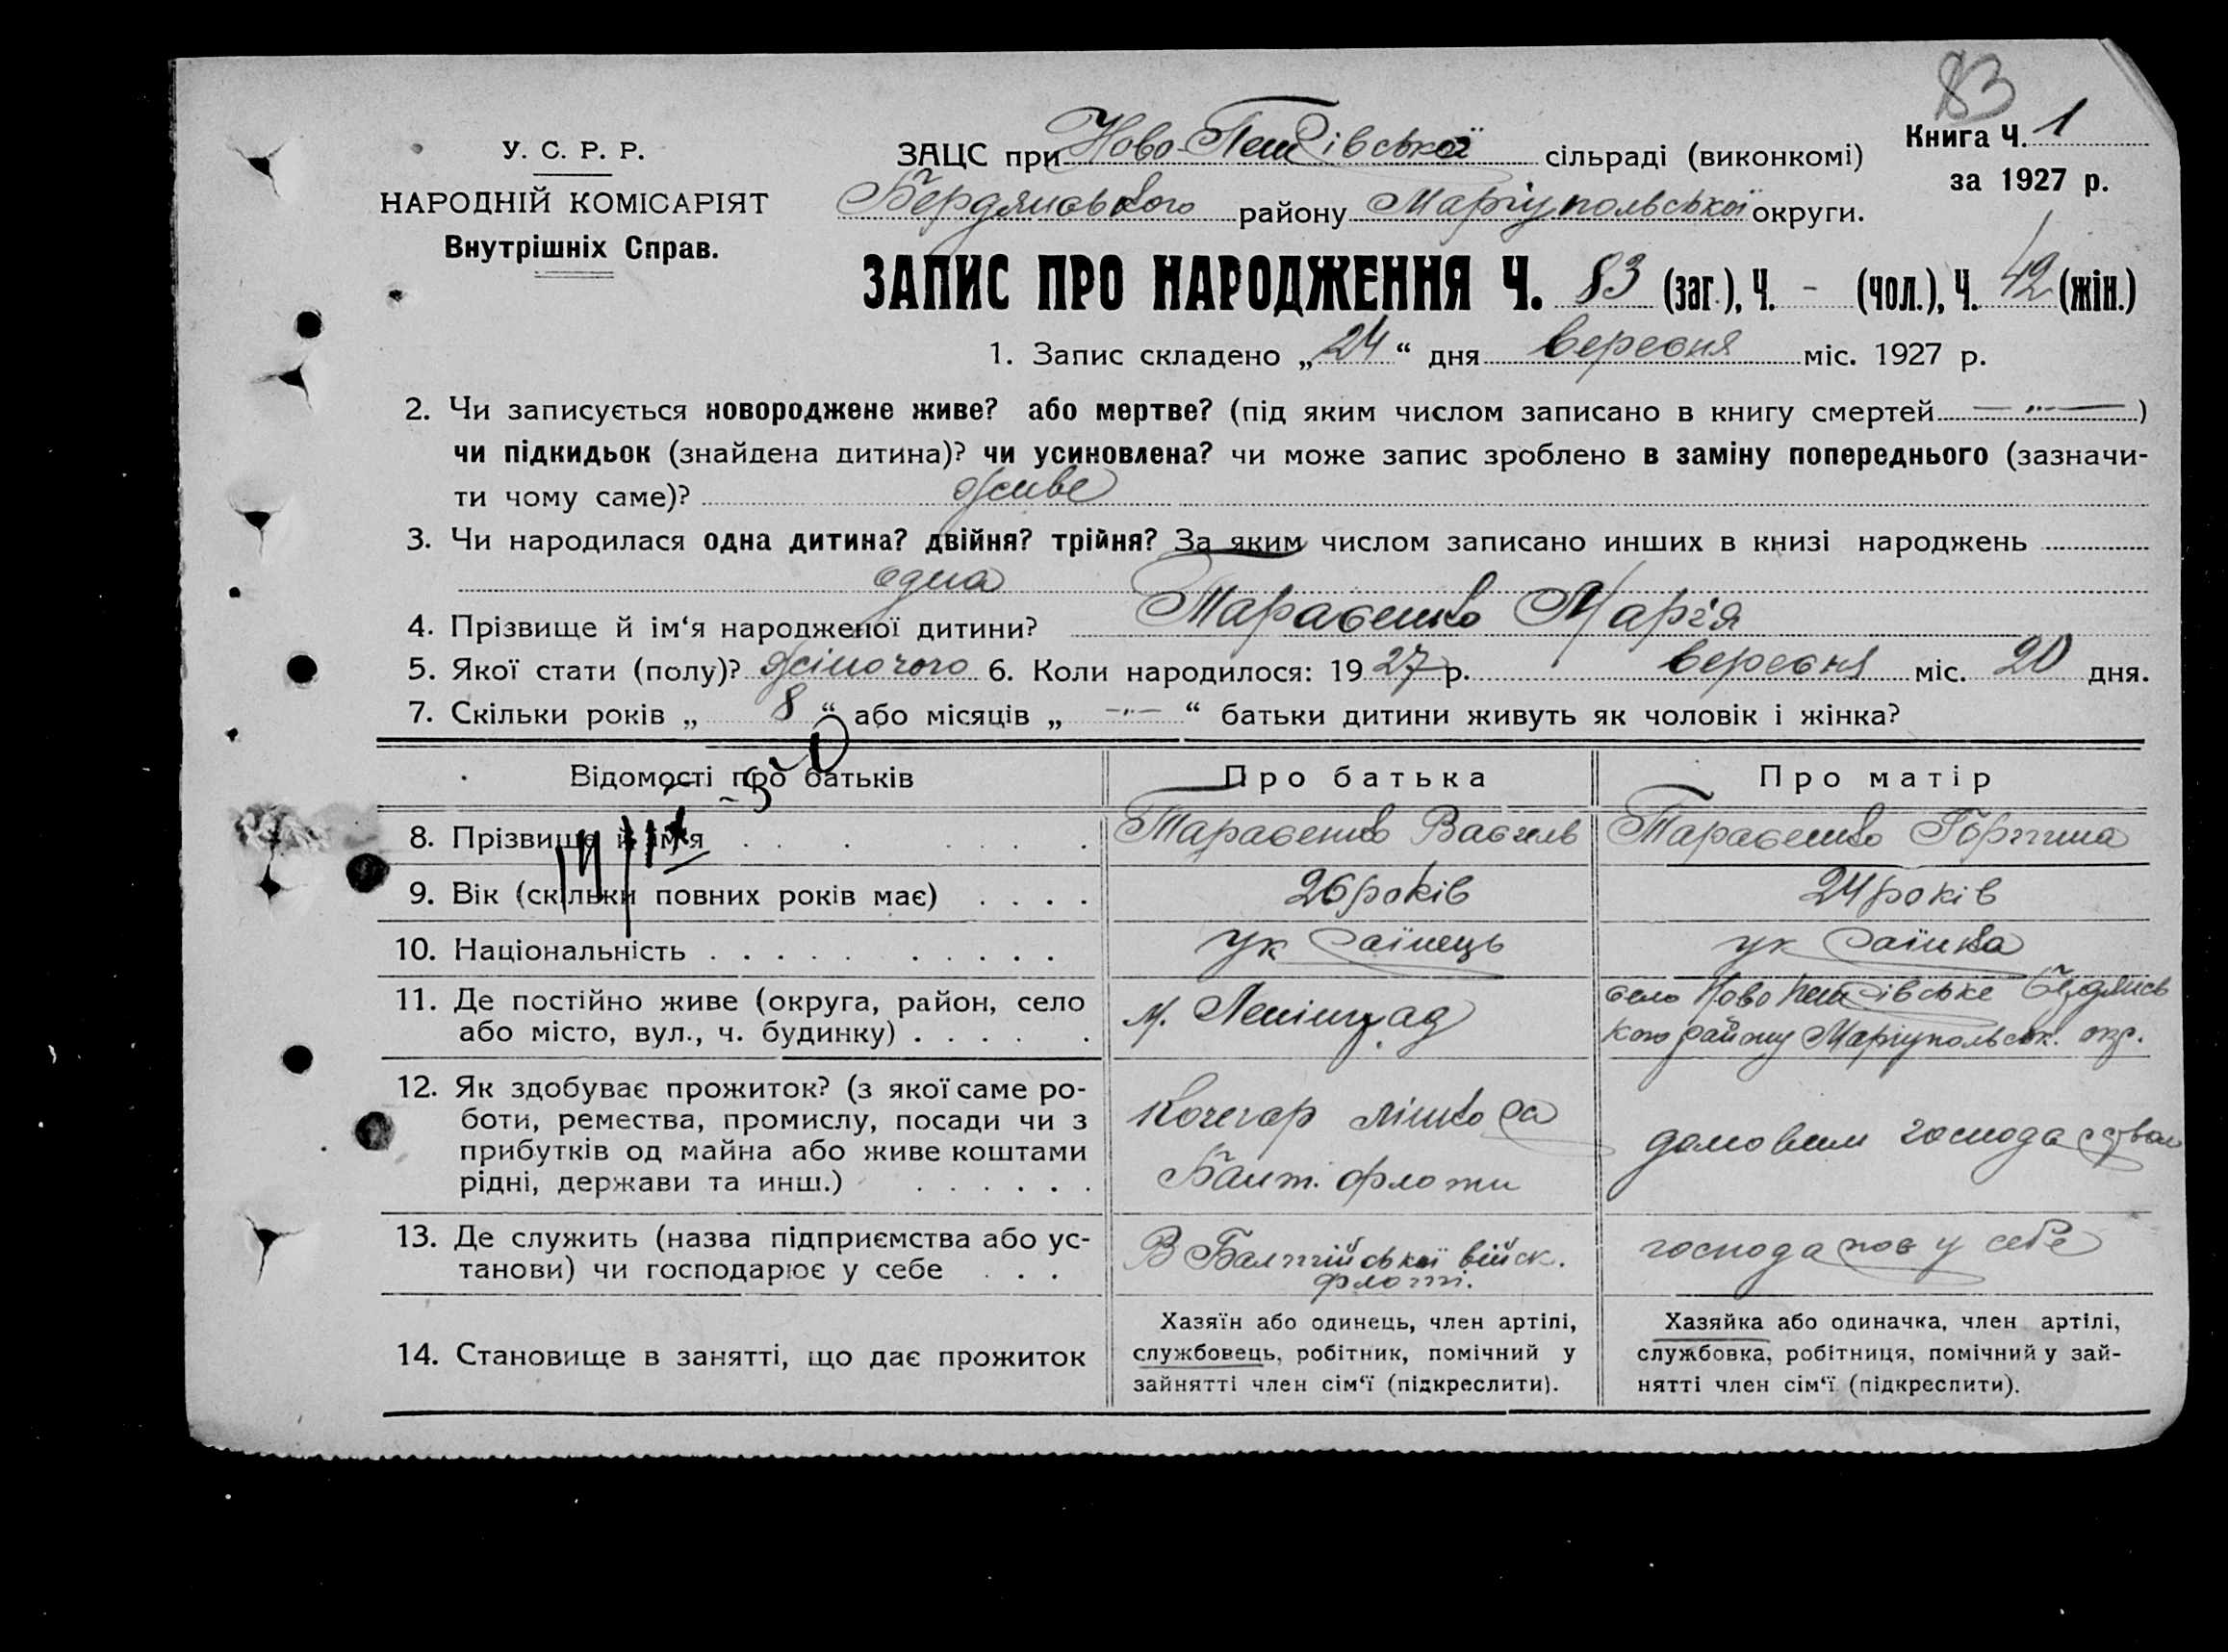 83
У. С. Р. Р.
НАРОДНІЙ КОМІСАРІЯТ
Внутрішніх Справ.
ЗАЦС при Ново-Петрівської сільраді (виконкомі)
Книга Ч. 1
за 1927 р.
Бердянського району Маріупольської округи.
ЗАПИС ПРО НАРОДЖЕННЯ Ч. 83 (заг.), Ч. - (чол.), Ч. 42 (жін.)
1. Запис складено „24“ дня вересня міс. 1927 р.
2. Чи записується новороджене живе? або мертве? (під яким числом записано в книгу смертей —"—)
чи підкидьок (знайдена дитина)? чи усиновлена? чи може запис зроблено в заміну попереднього (зазначи-
ти чому саме)? живе
3. Чи народилася одна дитина? двійня? трійня? За яким числом записано инших в книзі народжень
одна
4. Прізвище й ім‘я народженої дитини? Тарасенко Марія
5. Якої стати (полу)? жіночого 6. Коли народилося: 1927 р. вересня міс. 20 дня.
7. Скільки років „8“ або місяців „—"—“ батьки дитини живуть як чоловік і жінка?
Відомості про батьків Про батька Про матір
8. Прізвище й ім‘я . . . Тарасенко Василь Тарасенко Горпина
9. Вік (скільки повних років має) . . . . 26 років 24 років
10. Національність . . . . . . . . . . українець українка
11. Де постійно живе (округа, район, село
або місто, вул., ч. будинку) . . . . .
м. Ленінград
село Ново Петрівське Бердянсь
кого району Маріупольськ. окр.
12. Як здобуває прожиток? (з якої саме ро-
боти, ремества, промислу, посади чи з
прибутків од майна або живе коштами
рідні, держави та инш.) . . . . . .
Кочегар лінкора
Балт. флоти
домовим господарством
13. Де служить (назва підприємства або ус-
танови) чи господарює у себе . . .
В Балтійської війск.
флоті.
господарює у себе
14. Становище в занятті, що дає прожиток
Хазяїн або одинець, член артілі,
службовець, робітник, помічний у
зайнятті член сім‘ї (підкреслити).
Хазяйка або одиначка, член артілі,
службовка, робітниця, помічний у зай-
нятті член сім‘ї (підкреслити).